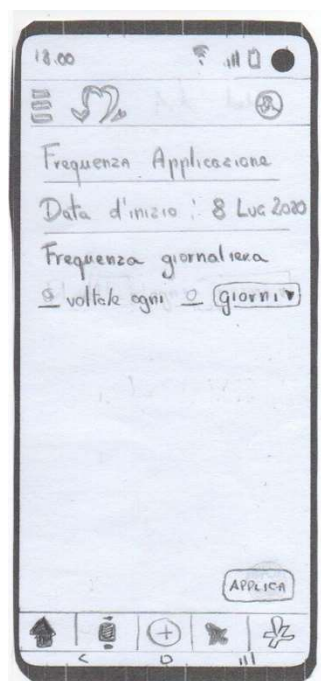 18.00
Frequenza Applicazione
Data d'inizio : 8 Lug 2020
Frequenza giornaliera
0 volta/e ogni 0 giorni
APPLICA